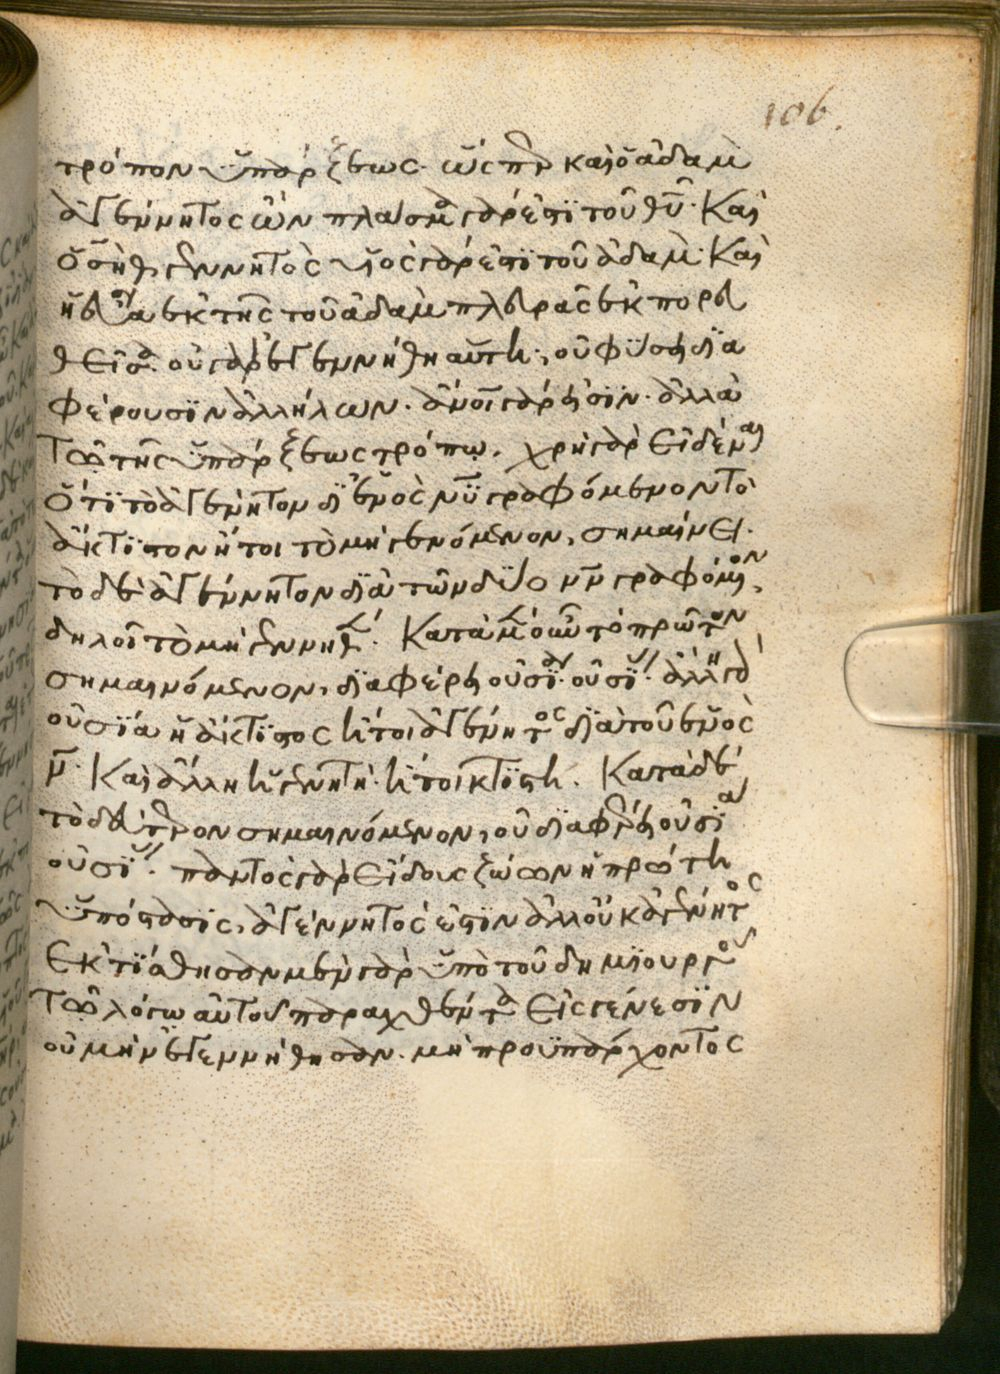 106.
τρόπον ὑπάρξεως. ὥσπερ καὶ ὁ ἀδὰμ
ἀγέννητος ὢν πλάσμα γάρ ἐστι τοῦ θῦ. Καὶ
ὁ σὴθ γεννητὸς υἱὸς γάρ ἐστι τοῦ ἀδὰμ. Καὶ
ἡ εὔα ἐκ τῆς τοῦ ἀδὰμ πλευρᾶς ἐκπορευ
θεῖσα. οὐ γὰρ ἐγεννήθη αὕτη, οὐ φύσει δια
φέρουσιν ἀλλήλων. ἄνοι γάρ εἰσιν. ἀλλὰ
τῷ τῆς ὑπάρξεως τρόπῳ. χρὴ γὰρ εἰδέναι
ὅτι τὸ ἀγένητον δι' ἑνὸς νῦ γραφόμενον τὸ
ἄκτιστον ἤτοι τὸ μὴ γενόμενον, σημαίνει.
τὸ δὲ ἀγέννητον διὰ τῶν δύο νν γραφόμενον,
δηλοῖ τὸ μὴ γεννηθέν. Κατὰ μὲν οὖν τὸ πρῶτον
σημαινόμενον, διαφέρει οὐσία οὐσίας. ἄλλη γὰρ
οὐσία ἡ ἄκτιστος ἤτοι ἀγένητος διὰ τοῦ ἑνὸς
ν. Καὶ ἄλλη ἡ γενητὴ. ἤτοι κτιστή. Κατὰ δὲ
τὸ δεύτερον σημαινόμενον, οὐ διαφέρει οὐσία
οὐσίας. παντὸς γὰρ εἴδους ζώων ἡ πρώτη
ὑπόστασις, ἀγέννητός ἐστιν ἀλλ' οὐκ ἀγένητος
Ἐκτίσθησαν μὲν γὰρ ὑπὸ τοῦ δημιουργοῦ
τῷ λόγῳ αὐτοῦ παραχθέντα εἰς γένεσιν
οὐ μὴν ἐγεννήθησαν. μὴ προϋπάρχοντος